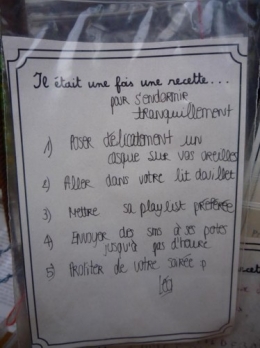 Il était une fois une recette...
pour s'endormir
tranquillement
1) Poser délicatement un
casque sur vos oreilles
2) Aller dans votre lit douillet
3) Mettre sa playlist préférée
4) Envoyer des sms à ses potes
jusqu'à pas d'heure
5) Profiter de votre soirée :p